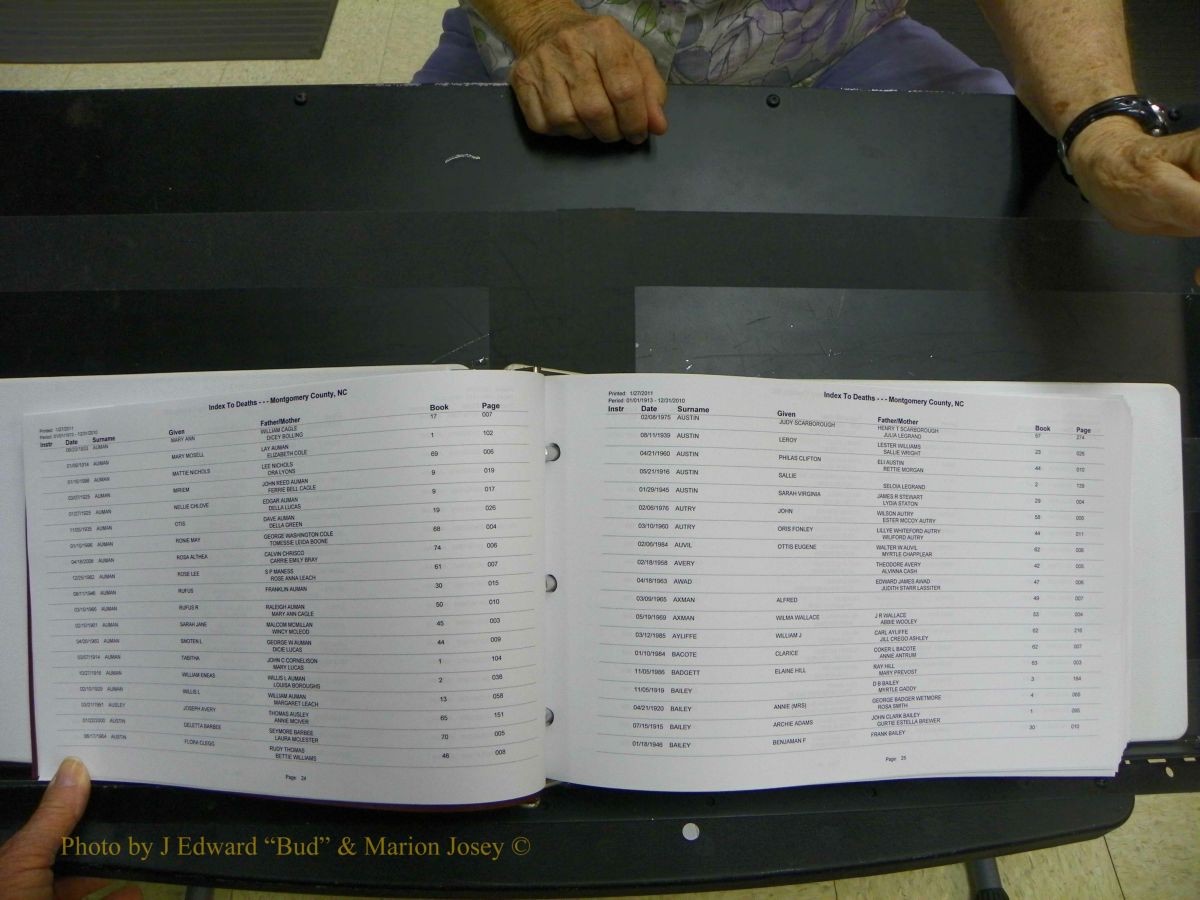 Index To Deaths - - - Montgomery County, NC
Printed: 1/27/2011
Period: 01/01/1913 - 12/31/2010
Instr Date Surname Given Father/Mother Book Page
AUMAN MARY ANN WILLIAM CAGLE 17 007
DICEY BOLLING
AUMAN MARY MOSELL LAY AUMAN 1 102
ELIZABETH COLE
AUMAN MATTIE NICHOLS LEE NICHOLS 69 006
ORA LYONS
AUMAN MIRIEM JOHN REED AUMAN 9 019
FERRIE BELL CAGLE
AUMAN NELLIE CHLOVE EDGAR AUMAN 9 017
DELLA LUCAS
AUMAN OTIS DAVE AUMAN 19 026
DELLA GREEN
AUMAN RONIE MAY GEORGE WASHINGTON COLE 68 004
TOMESSIE LEIDA BOONE
AUMAN ROSA ALTHEA CALVIN CHRISCO 74 006
CARRIE EMILY BRAY
AUMAN ROSE LEE S P MANESS 61 007
ROSE ANNA LEACH
AUMAN RUFUS FRANKLIN AUMAN 30 015
AUMAN RUFUS R RALEIGH AUMAN 50 010
MARY ANN CAGLE
AUMAN SARAH JANE MALCOM MCMILLAN 45 003
WINCY MCLEOD
AUMAN SMOTEN L GEORGE W AUMAN 44 009
DICIE LUCAS
AUMAN TABITHA JOHN C CORNELISON 1 104
MARY LUCAS
AUMAN WILLIAM ENEAS WILLIS L AUMAN 2 038
LOUISA BOROUGHS
AUMAN WILLIS L WILLIAM AUMAN 13 058
MARGARET LEACH
AUSLEY JOSEPH AVERY THOMAS AUSLEY 65 151
ANNIE MCIVER
AUSTIN DELETTA BARBEE SEYMORE BARBEE 70 005
LAURA MCLESTER
AUSTIN FLORA CLEGG RUDY THOMAS 46 008
BETTIE WILLIAMS
Page 24
Printed: 1/27/2011
Period: 01/01/1913 - 12/31/2010
Index To Deaths - - - Montgomery County, NC
Instr Date Surname Given Father/Mother Book Page
02/08/1975 AUSTIN JUDY SCARBOROUGH HENRY T SCARBOROUGH 57 274
JULIA LEGRAND
08/11/1939 AUSTIN LEROY LESTER WILLIAMS 23 026
SALLIE WRIGHT
04/21/1960 AUSTIN PHILAS CLIFTON ELI AUSTIN 44 010
RETTIE MORGAN
05/21/1916 AUSTIN SALLIE SELOIA LEGRAND 2 129
01/29/1945 AUSTIN SARAH VIRGINIA JAMES R STEWART 29 004
LYDIA STATON
02/06/1976 AUTRY JOHN WILSON AUTRY 58 006
ESTER MCCOY AUTRY
03/10/1960 AUTRY ORIS FONLEY LILLYE WHITEFORD AUTRY 44 011
WILIFORD AUTRY
02/06/1984 AUVIL OTTIS EUGENE WALTER W AUVIL 62 006
MYRTLE CHAPPLEAR
02/18/1958 AVERY THEODORE AVERY 42 005
ALVINNA CASH
04/18/1963 AWAD EDWARD JAMES AWAD 47 006
JUDITH STARR LASSITER
03/09/1965 AXMAN ALFRED 49 007
05/19/1969 AXMAN WILMA WALLACE J R WALLACE 53 004
ABBIE WOOLEY
03/12/1985 AYLIFFE WILLIAM J CARL AYLIFFE 62 216
JILL CREGO ASHLEY
01/10/1984 BACOTE CLARICE COKER L BACOTE 62 007
ANNIE ANTRUM
11/05/1986 BADGETT ELAINE HILL RAY HILL 63 003
MARY PREVOST
11/05/1919 BAILEY D B BAILEY 3 184
MYRTLE GADDY
04/21/1920 BAILEY ANNIE (MRS) GEORGE BADGER WETMORE 4 066
ROSA SMITH
07/15/1915 BAILEY ARCHIE ADAMS JOHN CLARK BAILEY 1 095
CURTIE ESTELLA BREWER
01/18/1946 BAILEY BENJAMAN F FRANK BAILEY 30 012
Page 25
Photo by J Edward “Bud” & Marion Josey ©